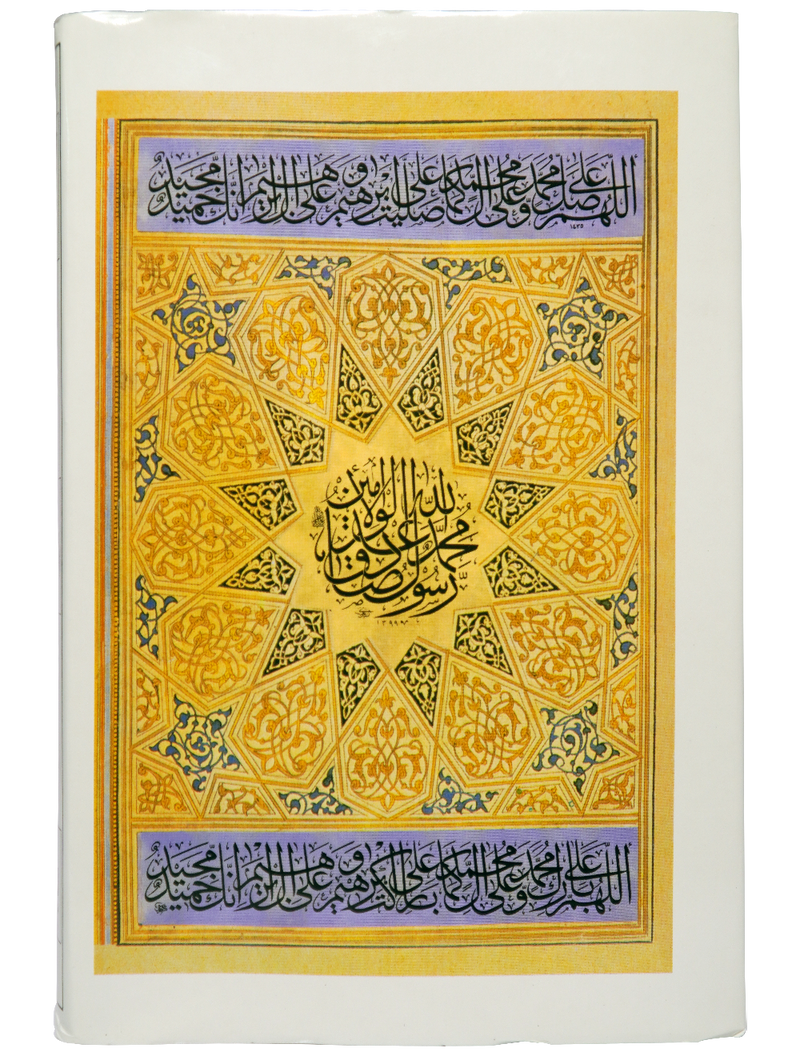 اللهم صل على محمد وعلى آل محمد كما صليت على ابرهيم وعلى آل ابرهيم انك حميد مجيد
١٤٣٥
محمد رسول الله صادق الوعد الامين
١٣٩٩
اللهم بارك على محمد وعلى آل محمد كما باركت على ابرهيم وعلى آل ابرهيم انك حميد مجيد